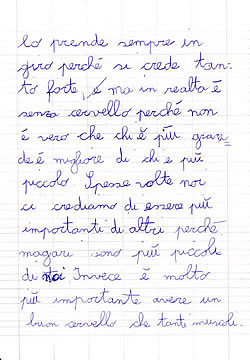 lo prende sempre in
giro perché si crede tan-
to forte, e ma in realtà è
senza cervello perché non
è vero che chi è più gran=
de è migliore di chi e più
piccolo. Spesse volte noi
ci crediamo di essere più
importanti di altri perché
magari sono più piccoli
di noi Invece è molto
più importante avere un
buon cervello che tanti muscoli.